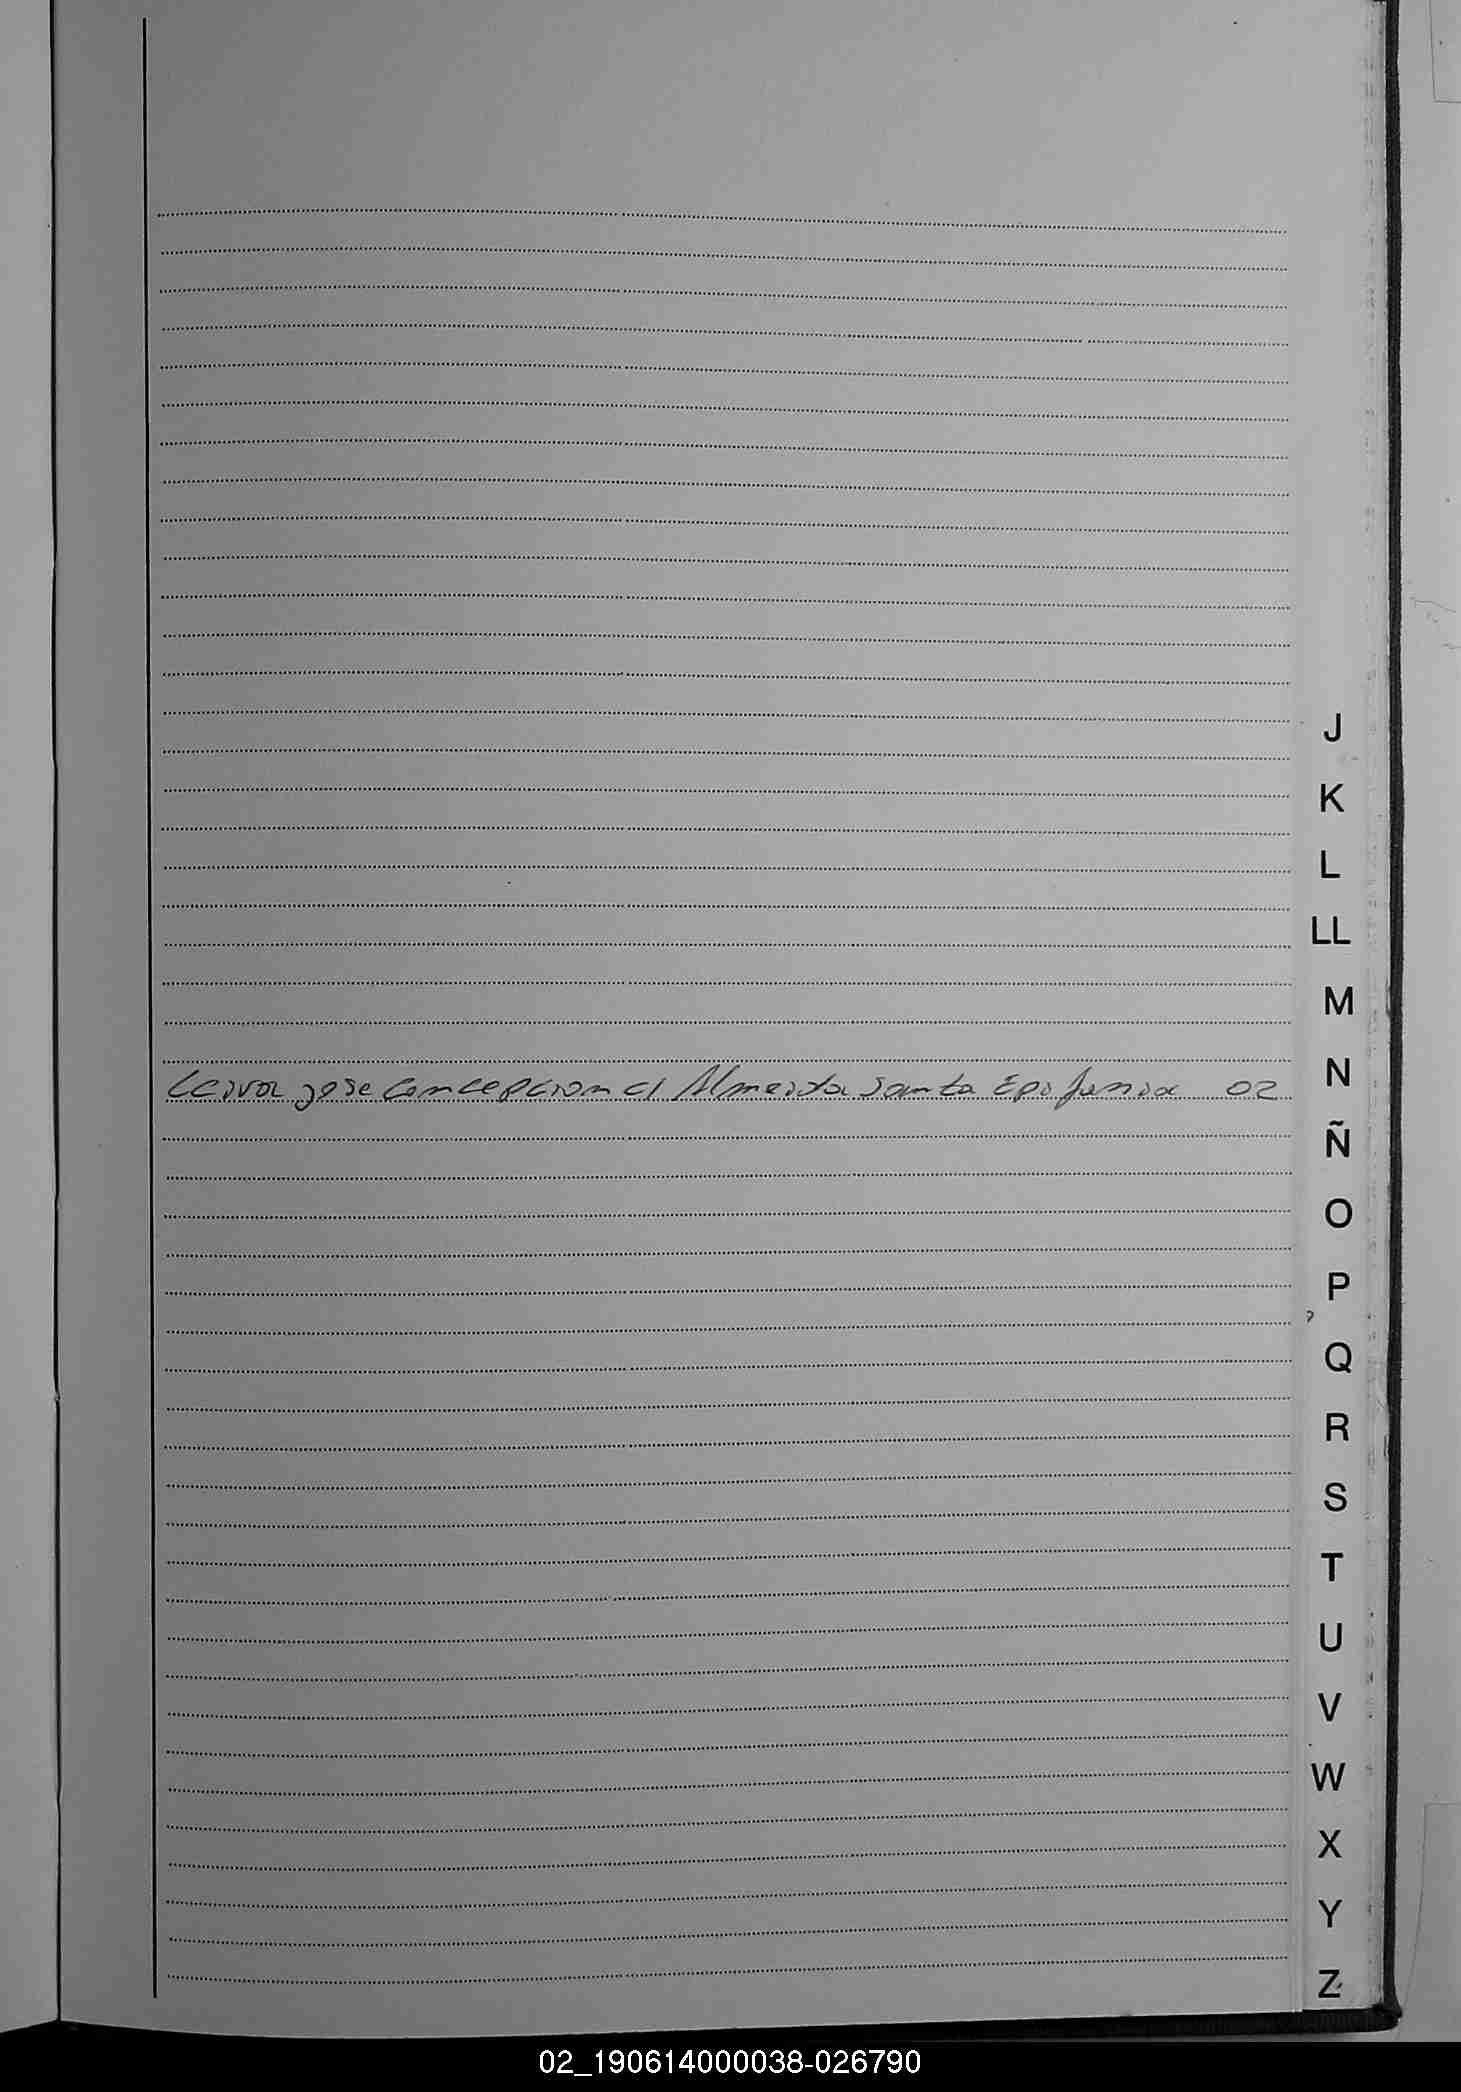 J
K
L
LL
M
N
Leiva jose Concepcion c/ Almeida Santa Epifania 02
Ñ
O
P
Q
R
S
T
U
V
W
X
Y
Z
02_190614000038-026790